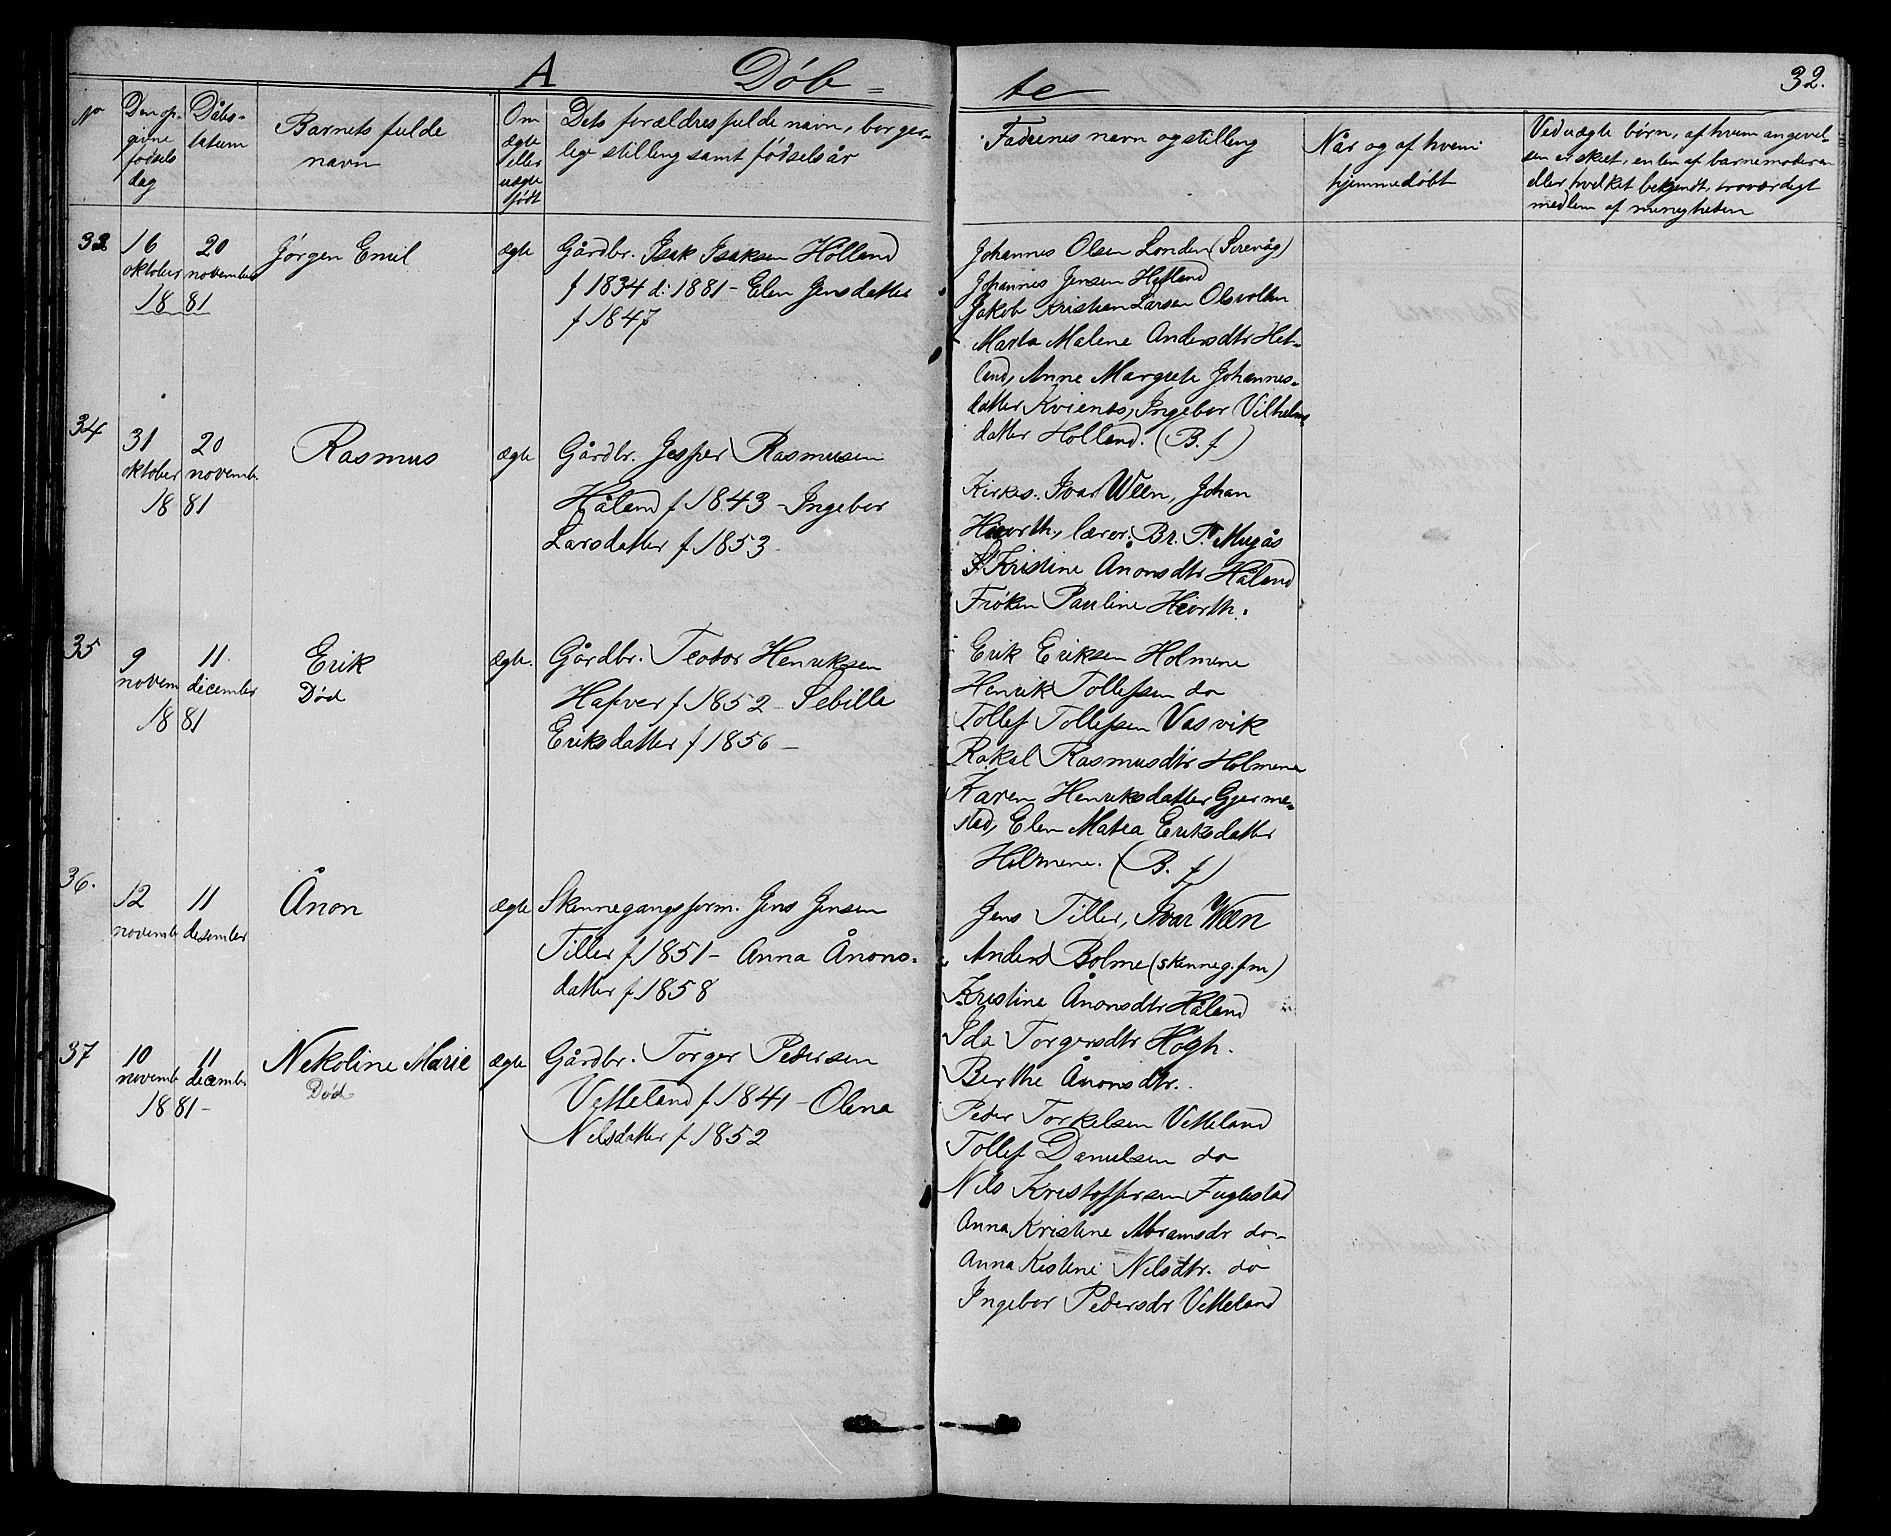 A Døb= te 32.
No
Den op-
givne
fødsels
dag
Dåbs-
datum
Barnets fulde
navn
Om
ægte
eller
uægte
født
Dets forældres fulde navn, borger-
lige stilling samt fødselsår
Faderenes navn og stilling
Når og af hvem
hjemmedøbt
Ved uægte børn, af hvem angivel-
sen er skeet, enten af barnemoderen
eller hvilket bekjendt, troværdigt
medlem af menigheden
33 16 oktober 20 november
1881
Jørgen Emil
ægte
Gårdbr. Isak Isaksen Holland
f 1834 d: 1881 - Elen Jensdatter
f 1847
Johannes Olsen Londen (Sirevåg)
Johannes Jensen Hetland
Jakob Kristian Larsen Olsvollen
Marta Malene Andersdtr Het-
land, Anne Margrete Johannes-
datter Kvienes, Ingebor Vilhelms
datter Holland. (B. f)
34 31 oktober 20 novemb.
1881
Rasmus
ægte
Gårdbr. Jesper Rasmusen
Håland f 1843 - Ingebor
Larsdatter f 1853.
Kirkes. Ivar Ween, Johan
Hiorth, lærer. Br. T. Mugås
Kristine Ånonsdtr Håland
Frøken Pauline Hiorth.
35 9 novem 11 december
1881
Erik
Død
ægte.
Gårdbr. Teodor Henriksen
Hafver f 1852 - Sebille
Eriksdatter f 1856 -
Erik Eriksen Holmene
Henrik Tollefsen do
Tollef Tollefsen Vasvik
Rakel Rasmusdtr Holmene
Karen Henriksdatter Gjerme-
stad, Elen Matea Eriksdatter
Holmene. (B. f)
36. 12 novemb 11 desember
Ånon
ægte
Skinnegangsform. Jens Jensen
Tiller f 1851 - Anna Ånons-
datter f 1858
Jens Tiller, Ivar Ween
Anders Bolme (skinneg. fm)
Kristine Ånonsdtr Håland
Ida Torgersdtr Høgh.
Berthe Ånonsdtr.
37 10 novemb 11 decemb
1881 -
Nekoline Marie
Død
ægte
Gårdbr. Torger Pedersen
Vetteland f 1841 - Olena
Nilsdatter f 1852
Peder Torkelsen Vetteland
Tollef Danielsen do
Nils Kristoffersen Fuglestad
Anna Kristine Abramsdr do-
Anna Kistine Nilsdtr. do
Ingebor Pedersdr Vetteland